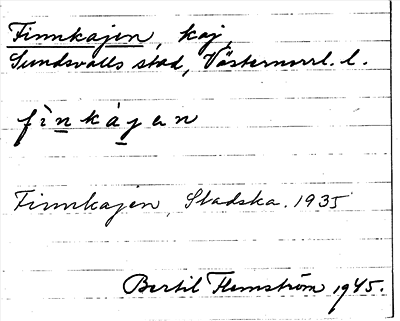 Finnkajen, kaj,
Sundsvalls stad, Västernorrl. l.
fìnkájen
Finnkajen, Stadska. 1935
Bertil Flemström 1945.